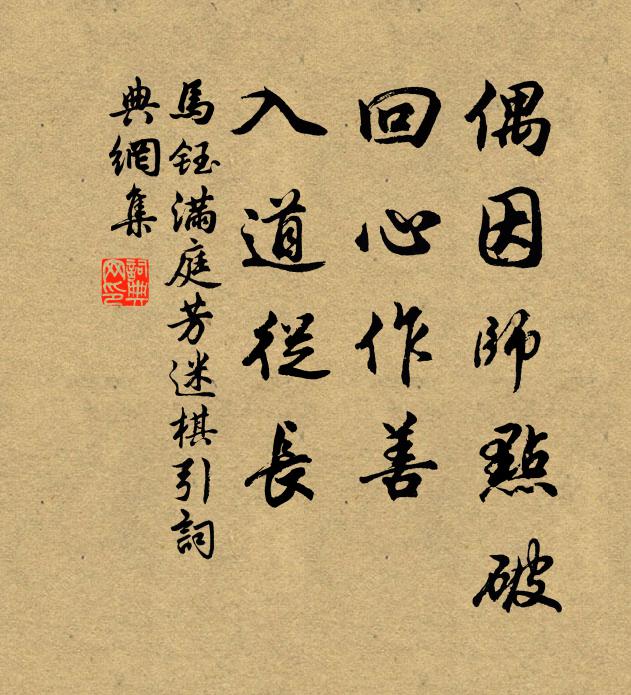 偶因師點破
回心作善
入道從長
馬鈺滿庭芳迷棋引詞
典網集
詞典
网印